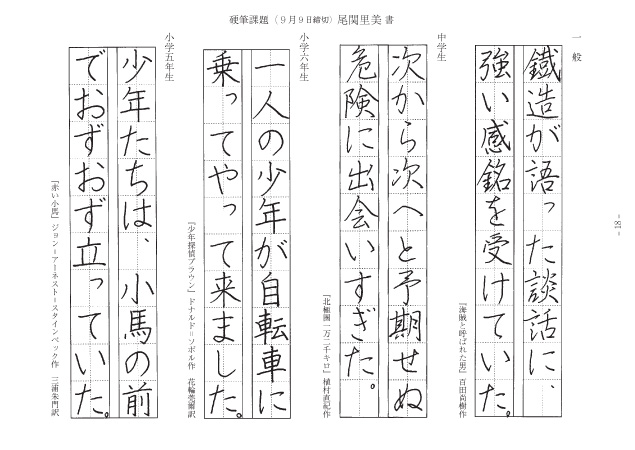 硬筆課題（９月９日締切）尾関里美 書
一　般
鐵造が語った談話に、
強い感銘を受けていた。
『海賊と呼ばれた男』百田尚樹作
中学生
次から次へと予期せぬ
危険に出会いすぎた。
『北極圏一万二千キロ』植村直紀作
小学六年生
一人の少年が自転車に
乗ってやって来ました。
『少年探偵ブラウン』ドナルド＝ソボル作　花輪莞爾訳
小学五年生
少年たちは、小馬の前
でおずおず立っていた。
『赤い小馬』ジョン＝アーネスト＝スタインベック作　三浦朱門訳
- 18 -